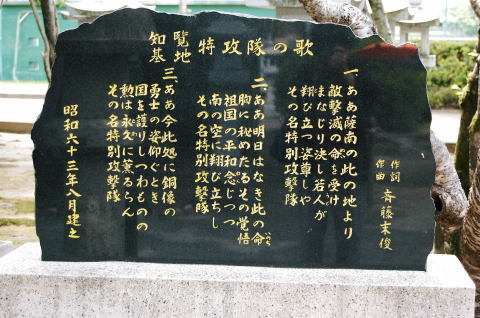 知覧
基地 特攻隊の歌
作詞
作曲 斉藤末俊
一、ああ薩南の此の地より
敵撃滅の命を受け
まなじり決し若人が
翔び立つ姿尊しや
その名特別攻撃隊
二、ああ明日はなき此の命
いのち
胸に秘めたるその覚悟
祖国の平和念じつつ
南の空に翔び立ちし
その名特別攻撃隊
三、ああ今此処に銅像の
勇士の姿仰ぐとき
国を護りしつわものの
勲は永久に薫るらん
その名特別攻撃隊
昭和六十三年八月建之